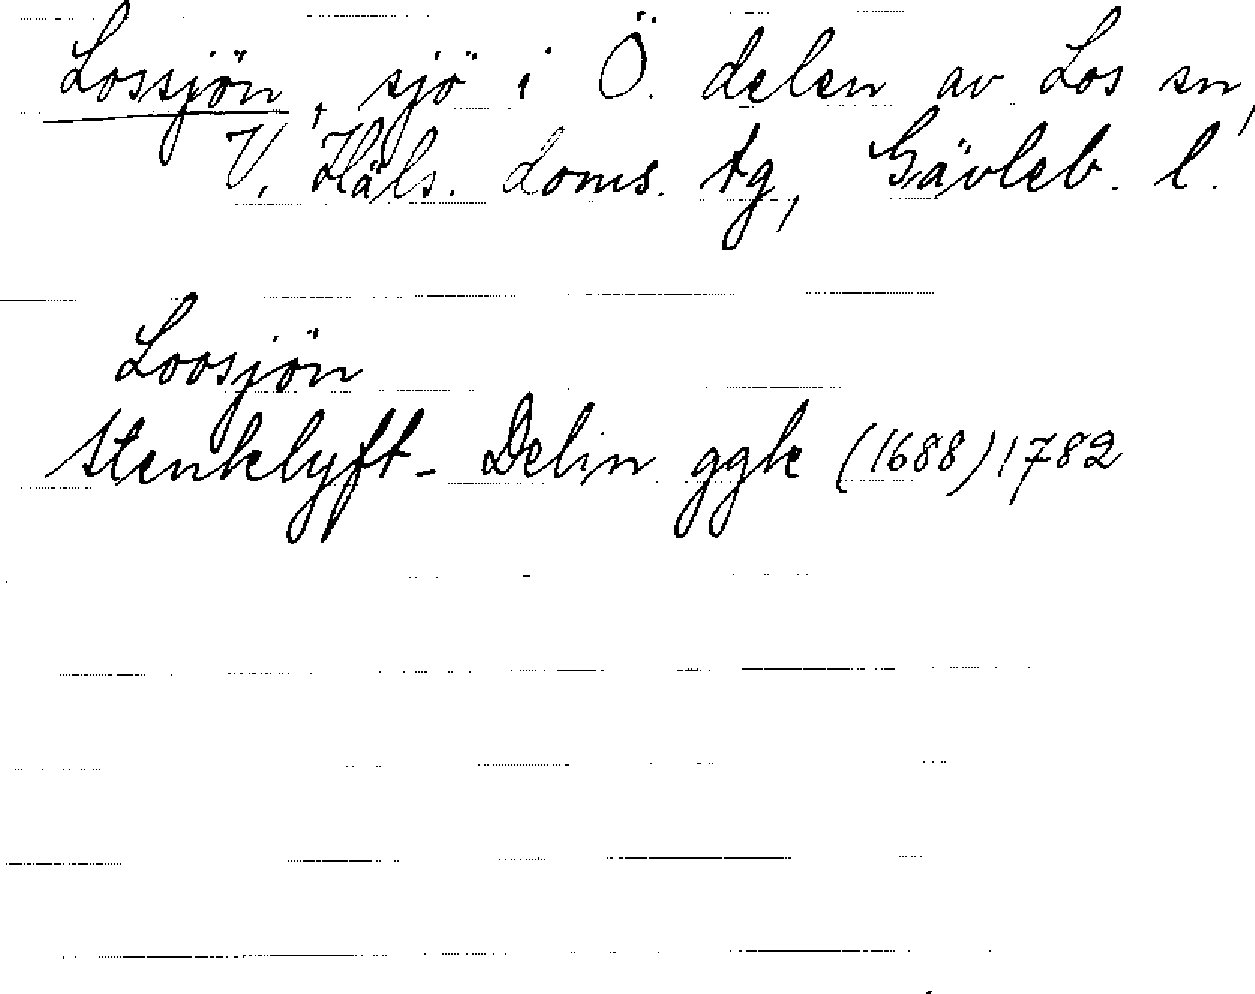 Lossjön, sjö i Ö. delen av Los sn,
V. Häls. doms. tg, Gävleb. l.
Loosjön
Stenklyft- Delin ggk (1688) 1782